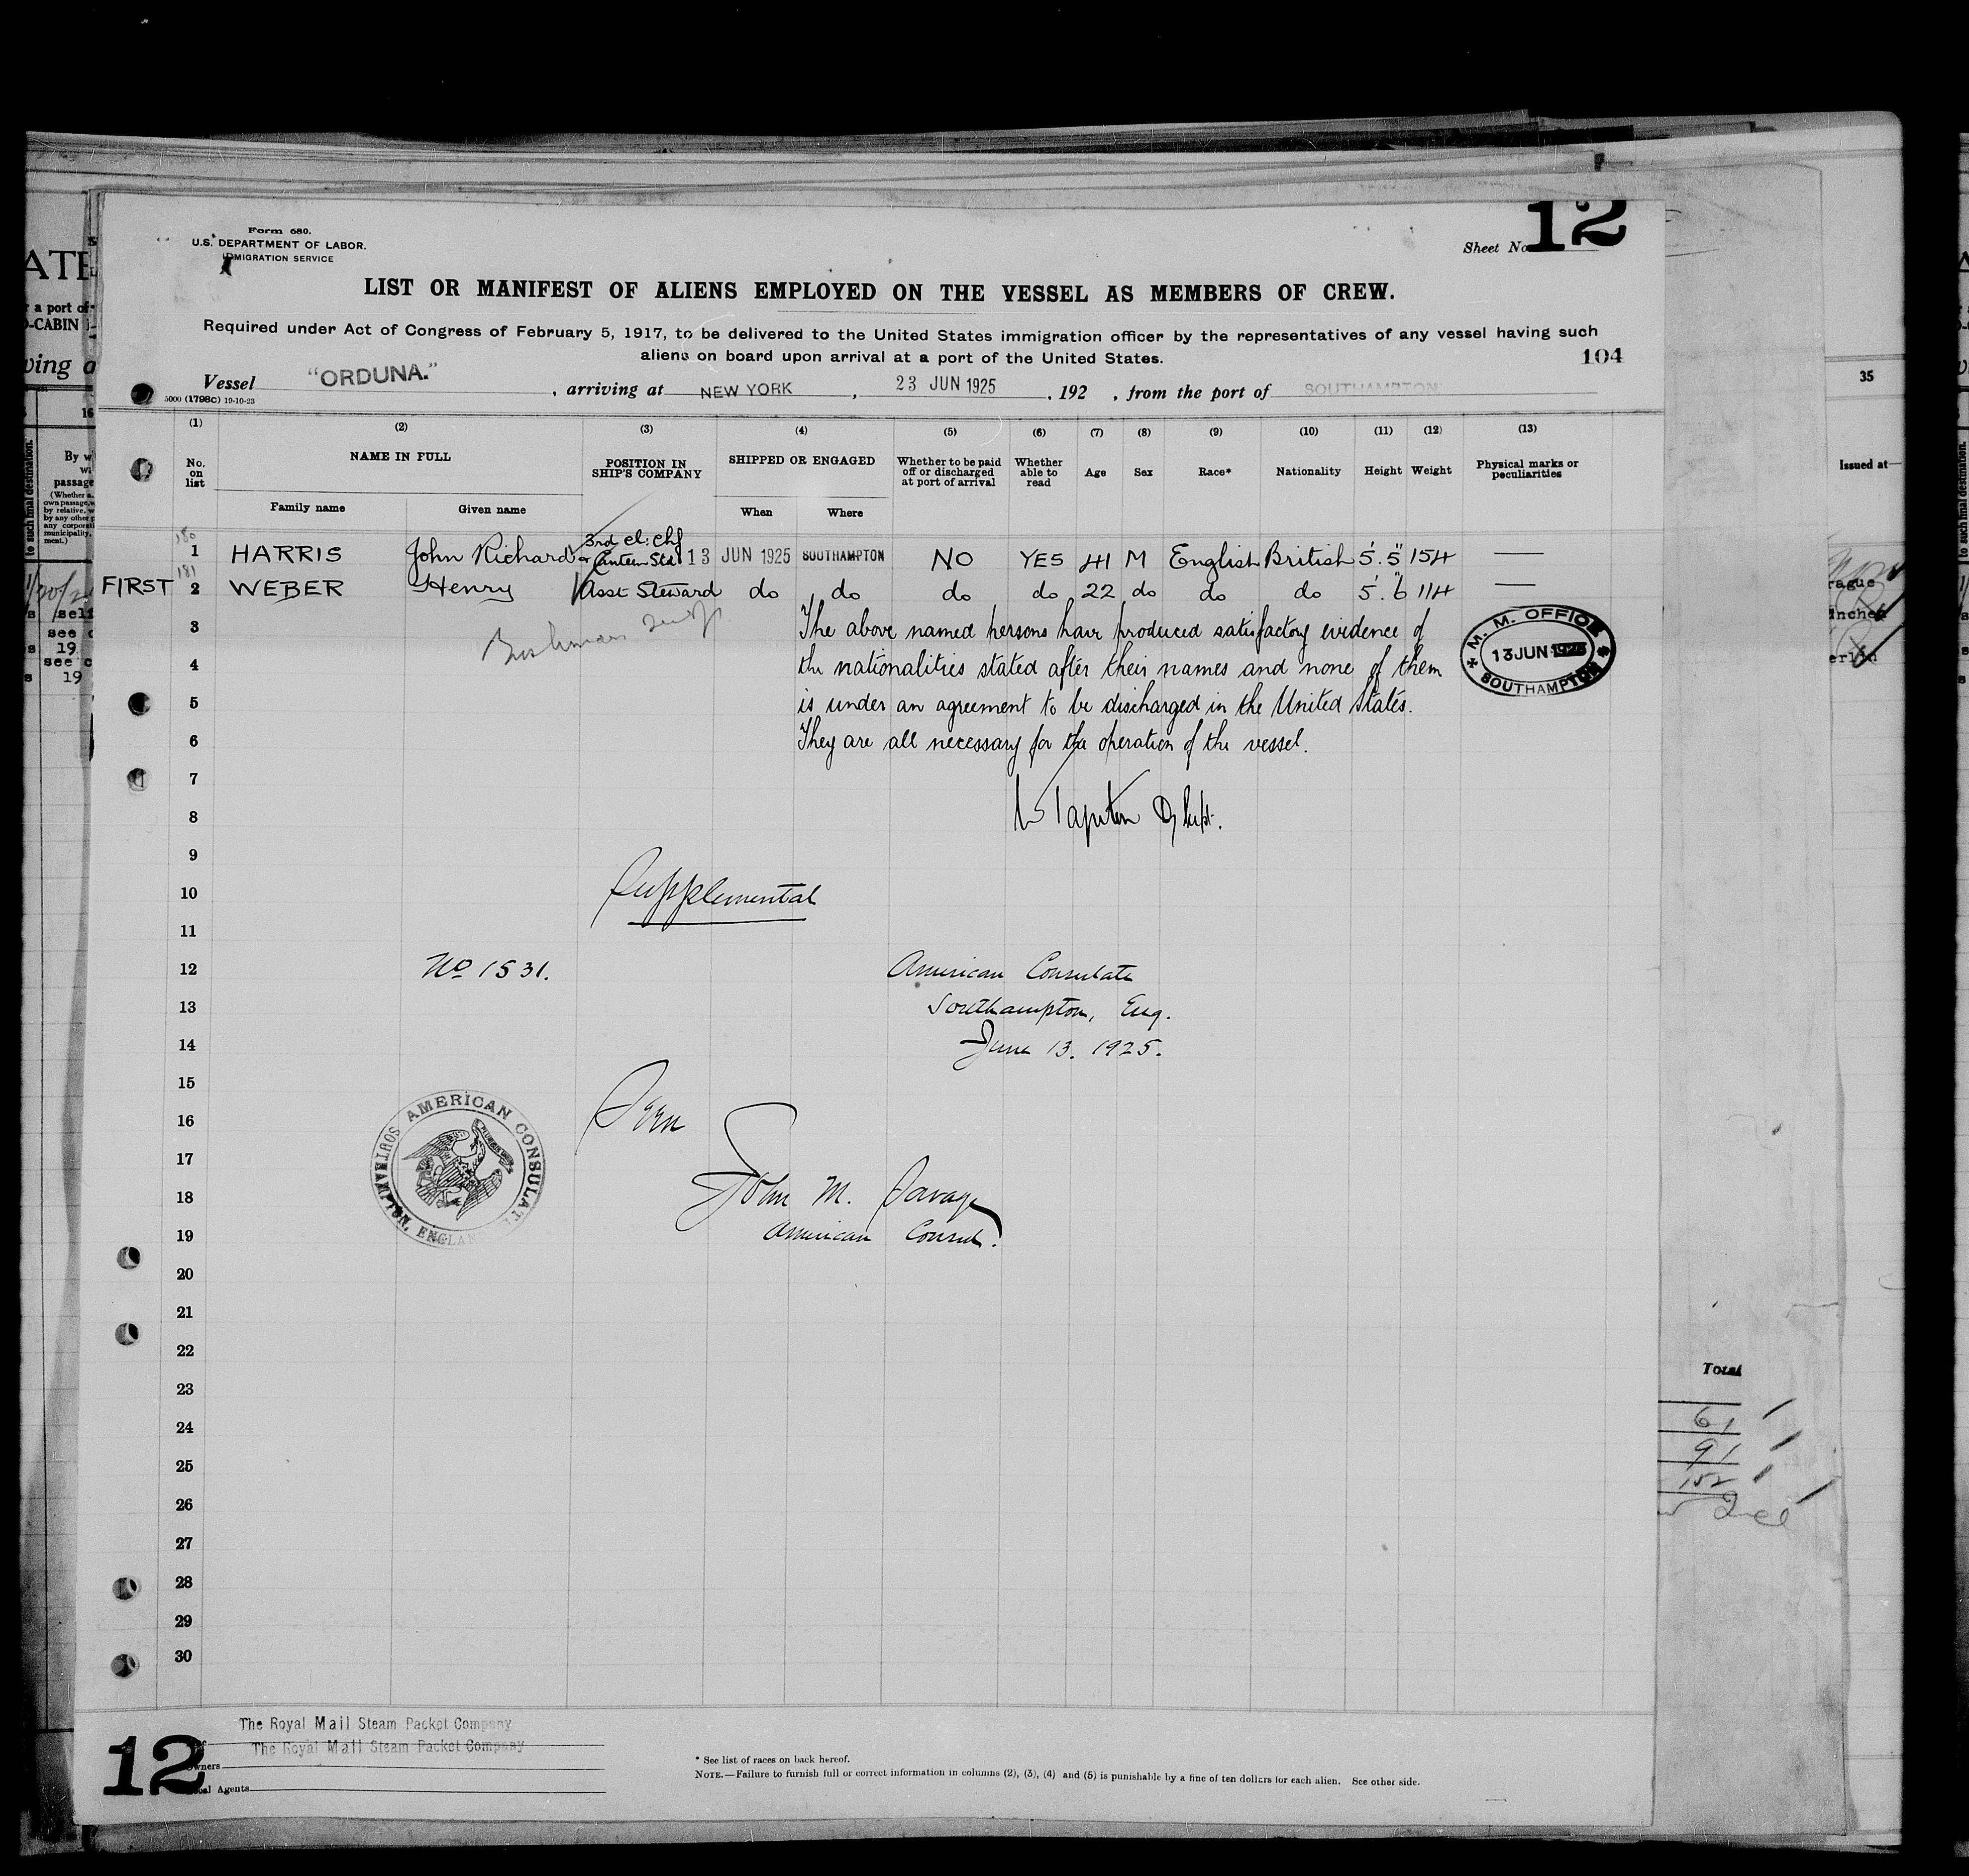 Form 680.
U.S. DEPARTMENT OF LABOR.
IMMIGRATION SERVICE
Sheet No. 12
LIST OR MANIFEST OF ALIENS EMPLOYED ON THE VESSEL AS MEMBERS OF CREW.
Required under Act of Congress of February 5, 1917, to be delivered to the United States immigration officer by the representatives of any vessel having such
aliens on board upon arrival at a port of the United States.
104
Vessel "ORDUNA." , arriving at NEW YORK , 23 JUN 1925 , 192 , from the port of SOUTHAMPTON
5000 (1798C) 19-10-23
(1) (2) (3) (4) (5) (6) (7) (8) (9) (10) (11) (12) (13)
No. on list
NAME IN FULL
Family name Given name
POSITION IN SHIP'S COMPANY
SHIPPED OR ENGAGED
When Where
Whether to be paid off or discharged at port of arrival
Whether able to read
Age Sex Race* Nationality Height Weight
Physical marks or peculiarities
180
1 HARRIS John Richard 3rd cl: chf Canteen Std. 13 JUN 1925 SOUTHAMPTON NO YES 41 M English British 5'.5" 154 —
181
FIRST 2 WEBER Henry Asst Steward do do do do 22 do do do 5'.6" 114 —
3 The above named persons have produced satisfactory evidence of
4 the nationalities stated after their names and none of them
5 is under an agreement to be discharged in the United States.
6 They are all necessary for the operation of the vessel.
M. M. OFFICE
13 JUN 1925
SOUTHAMPTON
7
8
9
10 Supplemental
11
12 No 1531. American Consulate
13 Southampton, Eng.
14 June 13. 1925.
15
16 Seen
17
18 John M. Savage
19 American Consul.
AMERICAN CONSULATE
SOUTHAMPTON, ENGLAND
20
21
22
23
24
25
26
27
28
29
30
The Royal Mail Steam Packet Company
The Royal Mail Steam Packet Company
12
Owners
Local Agents
* See list of races on back hereof.
NOTE.—Failure to furnish full or correct information in columns (2), (3), (4) and (5) is punishable by a fine of ten dollars for each alien. See other side.
35
Issued at
Total
61
91
152